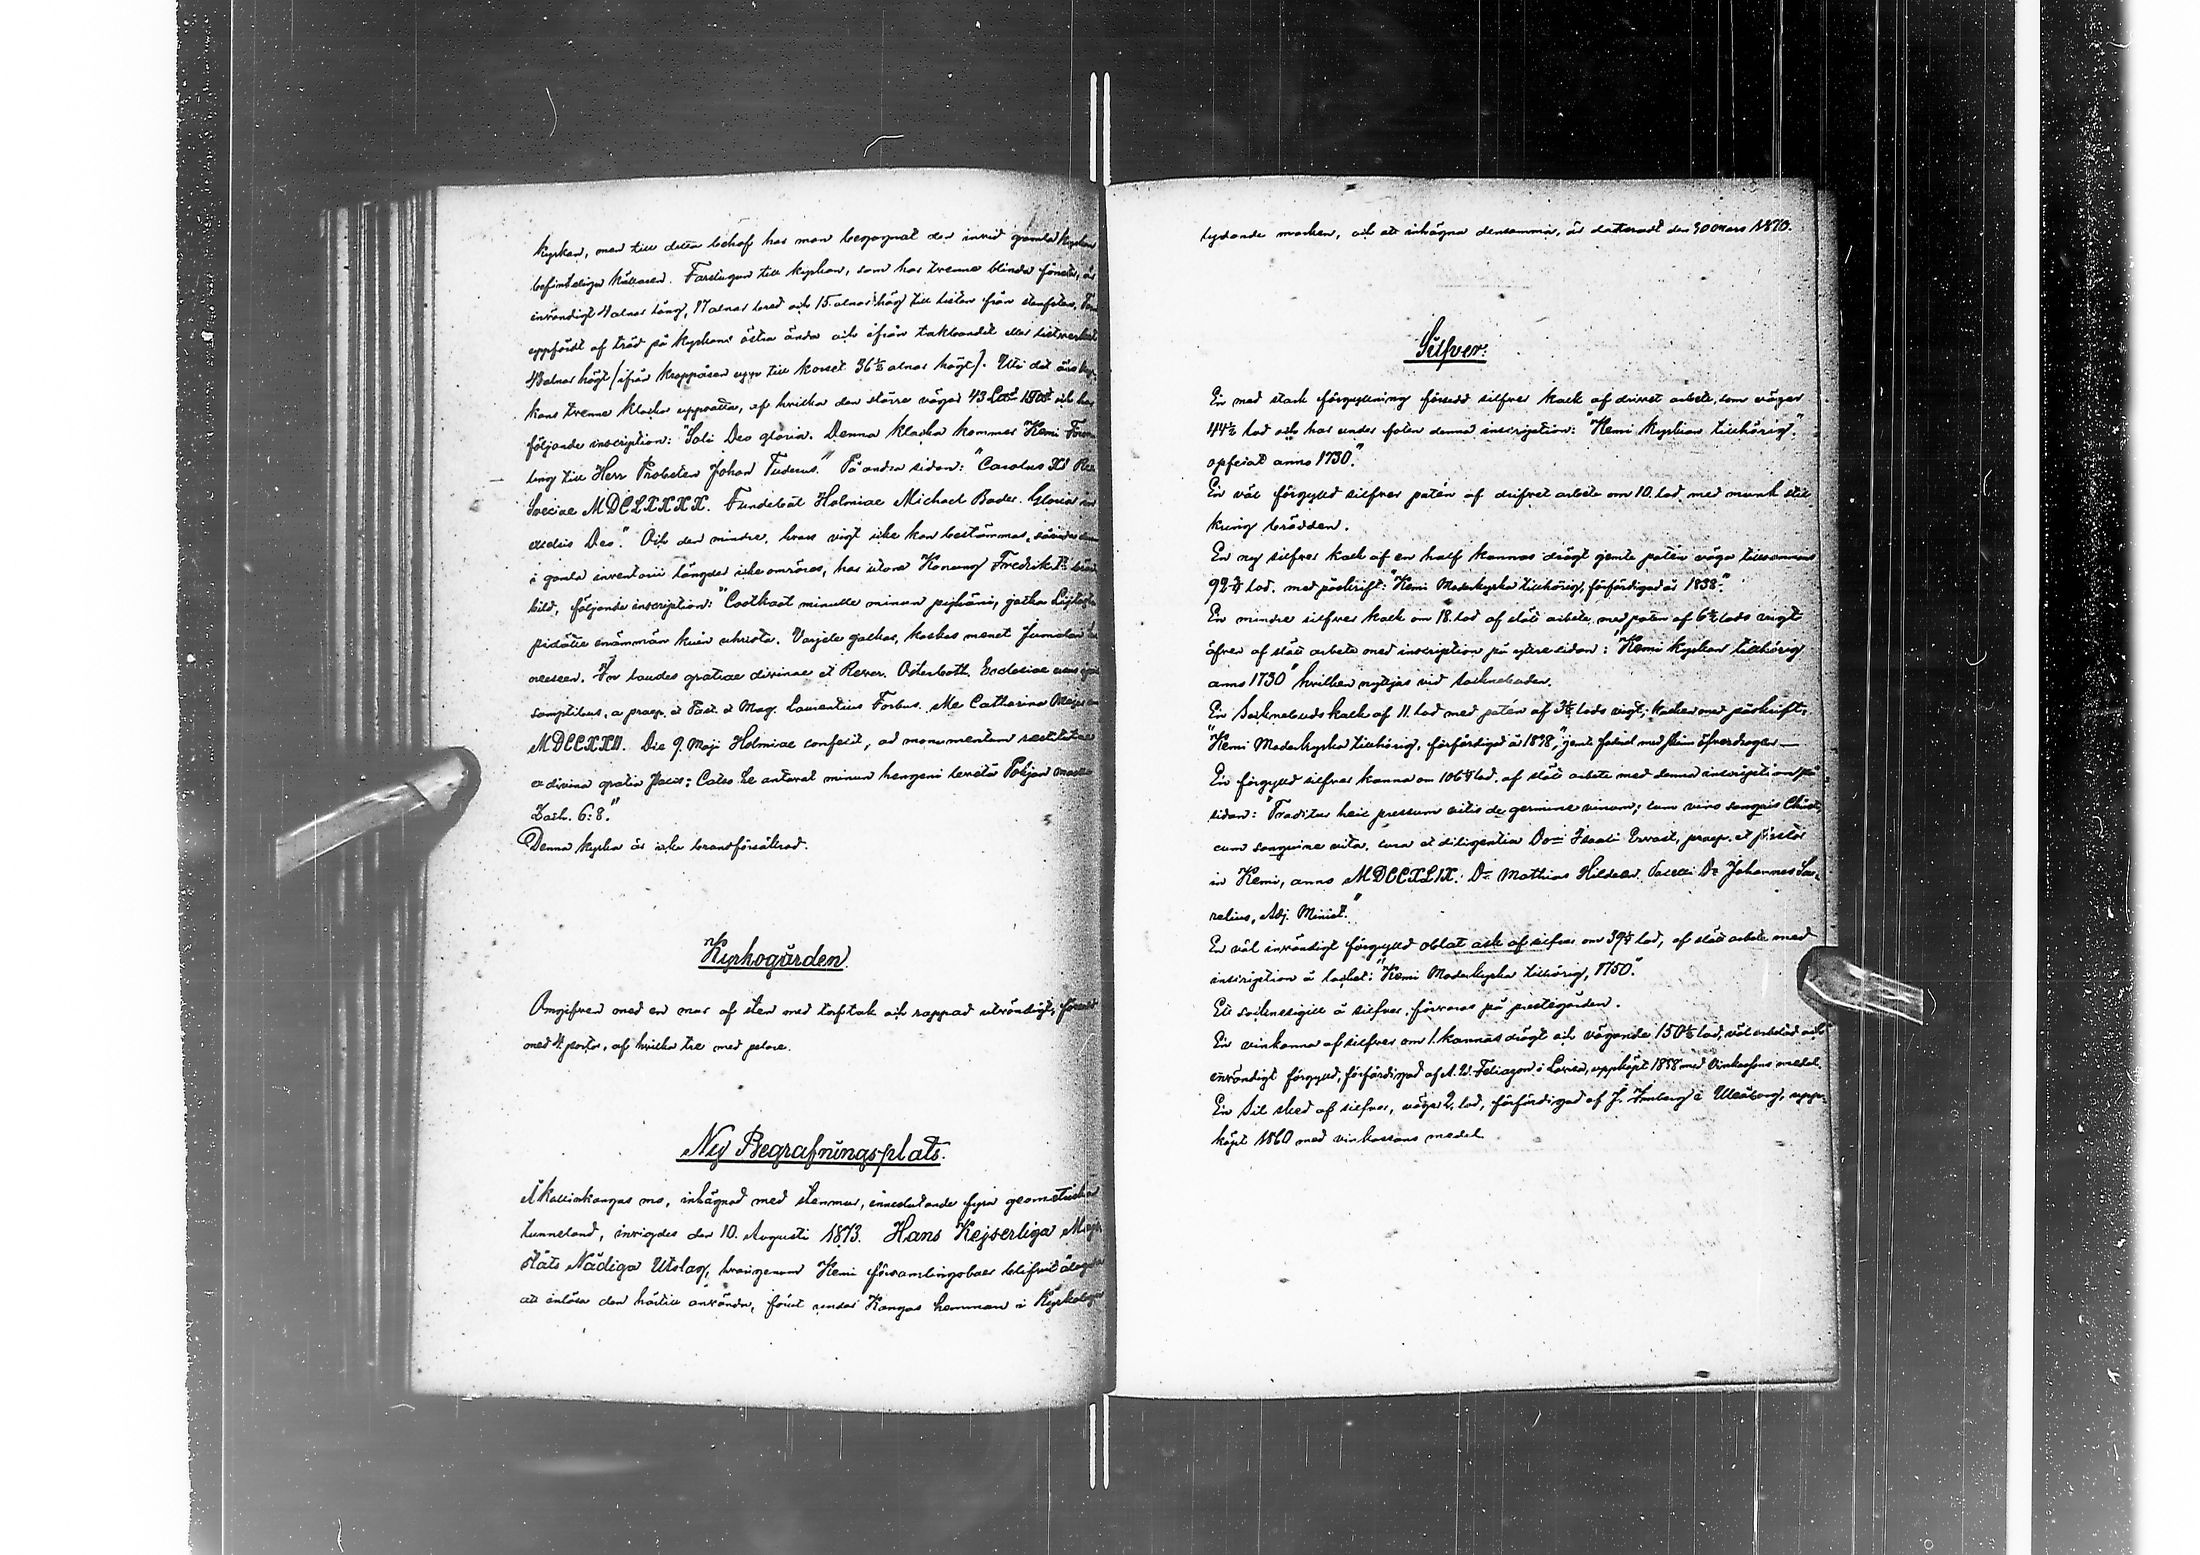 kyrkan, men till detta behof har man begagnat den invid gamla kyrkan
befintliga källaren. Farstugan till kyrkan, som har tvenne blinda fönster, är
invändigt 4 alnar lång, 17 alnar bred och 15 alnar hög till listen från stenfoten.
uppfördt af träd på kyrkans östra ända och ifrån takbandet eller listverket
48 alnar högt (ifrån kroppåsen upp till korset 36½ alnar högt). Uti det äro kyr-
kans tvenne klockor uppsatta, af hvilka den större väger 43 och har
följande inscription: "Soli Deo gloria. Denna klocka kommer Kemi Försam-
ling till Herr Probsten Johan Tuderus." På andra sidan: "Carolus XI Rex
Sveciae MDCLXXXX. Fundebat Holmiae Michael Bader. Gloria in
excelsis Deo." Och den mindre, hvars vigt icke kan bestämmas, såvida den
i gamla inventarii längder icke omröres, har utom Konung Fredrik I:s bröst-
bild, följande inscription: "Coothaat minulle minun pyhäni, jotka Lijtoni
pidätte enämmän kuin uhrista. Varjele jalkas, koskas menet Jumalan
neseen. In laudes gratiae divinae et Rever. Osterboth. Ecclesiae
sumptibus, a praep. et Past. et Mag. Laurentius Forbus. Me Catharina Meijer
MDCCXXII. Die 9. Maji Holmiae confecit, ad monumentum restitutae
ex divina gratia Pacis: Catso he antavat minun hengeni levätä Pohjan maalla
Zach. 6:8."
Denna kyrka är icke brandförsäkrad.
Kyrkogården
Omgifven med en mur af sten med torftak och rappad utvändigt, försedd
med 4 portar, af hvilka tre med pelare.
Ny Begrafningsplats.
Å Kallinkangas mo, inhägnad med stenmur, inneslutande fyra geometriska
tunneland, invigdes den 10. Augusti 1873. Hans Kejserliga Maje-
stäts Nådiga Utslag, hvarigenom Kemi församlingsboer blifvit ålagda
att inlösa den härtill använda, förut under Kangas hemman i Kyrkoby
lydande marken, och att inhägna densamma, är dateradt den 30 Mars 1870.
Silfver.
En med stark förgyllning försedd silfver kalk af drivet arbete, som väger
44½ lod och har under foten denna inscription: "Kemi kyrkan tillhörig,
opferat anno 1730."
En väl förgylld silfver patén af drifvet arbete om 10. lod med munk stil
kring brädden.
En ny silfver kalk af en half kannas drägt jemte patén väga tillsammans
92¾ lod. med påskrift: "Kemi Moderkyrka tillhörig, förfärdigad år 1838."
En mindre silfver kalk om 18. lod af slätt arbete, med patén af 6½ lods vigt
äfven af slätt arbete med inscription på yttre sidan: "Kemi kyrkan tillhörig
anno 1730" hvilken nyttjas vid sockneboden.
En Socknebuds kalk af 11. lod med patén af 3½ lods vigt; kalken med påskrift:
"Kemi Moderkyrka tillhörig, förfärdigad år 1838," jemte foderal med skinn öfverdragen —
En förgylld silfver kanna om 106¼ lod. af slätt arbete med denna inscription på
sidan: "Traditur heic pressum vitis de germine vinum; cum vino sanguis Christi,
cum sanguine vita, cura et diligentia Dom Isaaci Ervast, praep. et pastor
in Kemi, anno MDCCXLIX. Dr Mathias Hildeen Sacelli Dr Johannes Sa-
relius, Adj. Minist."
En väl invändigt förgylld oblat ask af silfver om 39¼ lod, af slätt arbete med
inscription å locket: "Kemi Moderkyrka tillhörig, 1750."
Ett sockensigill å silfver, förvaras på prestegården.
En vinkanna af silfver om 1. kannas drägt och vägande 150½ lod, väl arbetad och
invändigt förgylld, förfärdigad af A. W. i Lovisa, uppköpt 1858 med Vinkassans medel.
En Sil sked af silfver, väger 2. lod, förfärdigad af J. i Uleåborg, upp-
köpt 1860 med vinkassans medel.